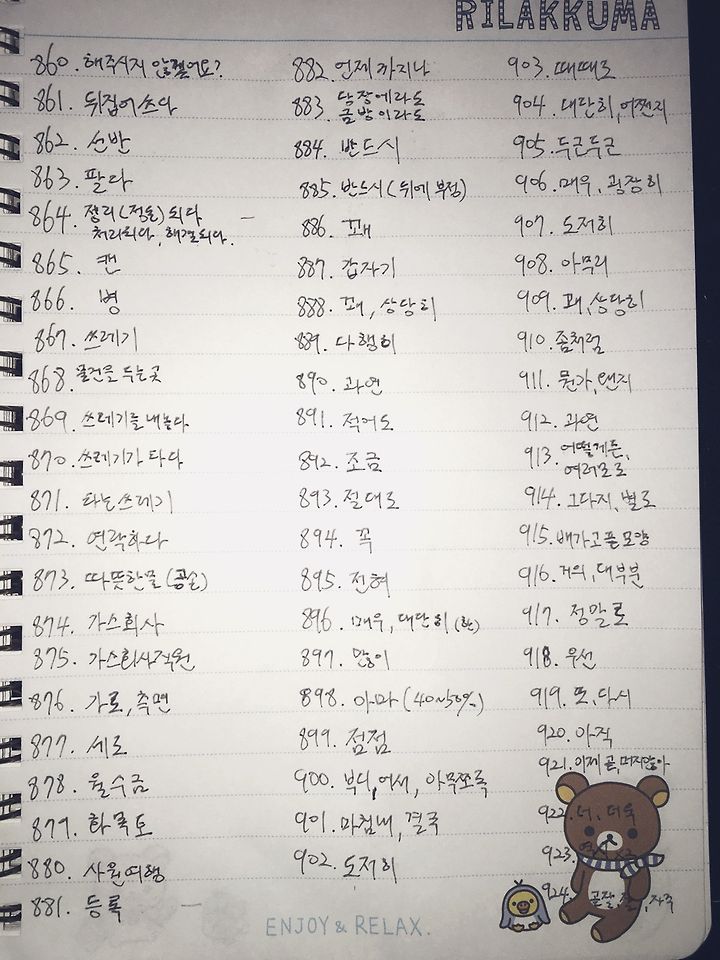 RILAKKUMA
860. 해주시지 않겠어요?
861. 뒤집어쓰다
862. 선반
863. 팔다
864. 정리(정돈)되다
처리되다, 해결되다.
865. 캔
866. 병
867. 쓰레기
868. 물건을 두는곳
869. 쓰레기를 내놓다
870. 쓰레기가 타다
871. 타는쓰레기
872. 연락하다
873. 따뜻한물 (공손)
874. 가스회사
875. 가스회사직원
876. 가로, 측면
877. 세로
878. 월수금
879. 화목토
880. 사원여행
881. 등록
882. 언제까지나
883. 당장에라도
금방이라도
884. 반드시
885. 반드시 (뒤에 부정)
886. 꽤
887. 갑자기
888. 꽤, 상당히
889. 다행히
890. 과연
891. 적어도
892. 조금
893. 절대로
894. 꼭
895. 전혀
896. 매우, 대단히 (한)
897. 많이
898. 아마 (40~50%)
899. 점점
900. 부디, 어서, 아무쪼록
901. 마침내, 결국
902. 도저히
903. 때때로
904. 대단히, 어쩐지
905. 두근두근
906. 매우, 굉장히
907. 도저히
908. 아무리
909. 꽤, 상당히
910. 좀처럼
911. 뭔가, 왠지
912. 과연
913. 어떻게든,
여러모로
914. 그다지, 별로
915. 배가고픈모양
916. 거의, 대부분
917. 정말로
918. 우선
919. 또, 다시
920. 아직
921. 이제 곧, 머지않아
922. 더, 더욱
923.
924. 곧잘, 잘, 자주
ENJOY & RELAX.